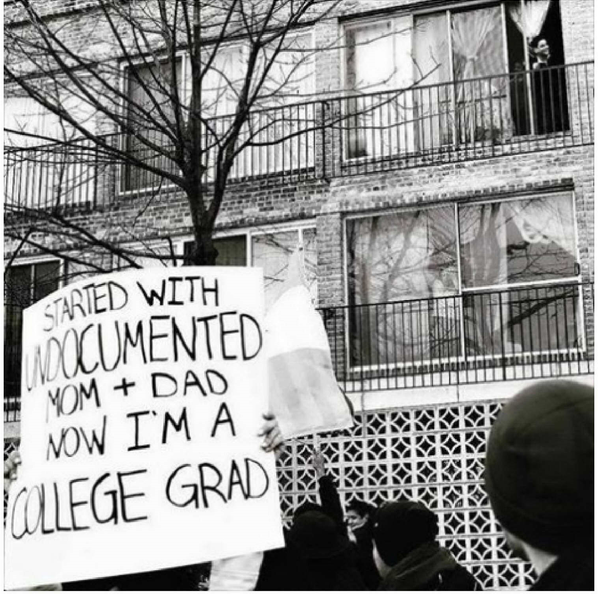 STARTED WITH
UNDOCUMENTED
MOM + DAD
NOW I'M A
COLLEGE GRAD